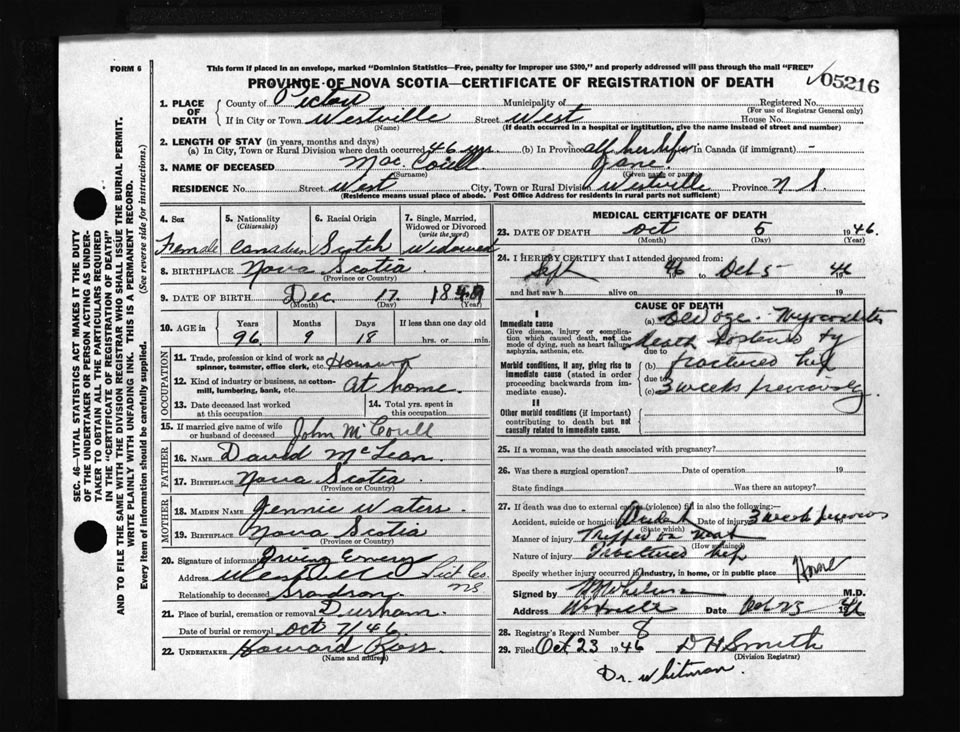 FORM 6
This form if placed in an envelope, marked "Dominion Statistics—Free, penalty for improper use $300," and properly addressed will pass through the mail "FREE"
PROVINCE OF NOVA SCOTIA—CERTIFICATE OF REGISTRATION OF DEATH
05216
1. PLACE OF DEATH County of Pictou Municipality of Registered No.
(For use of Registrar General only)
If in City or Town Westville Street West House No.
(Name) (If death occurred in a hospital or institution, give the name instead of street and number)
2. LENGTH OF STAY (in years, months and days)
(a) In City, Town or Rural Division where death occurred 46 yrs. (b) In Province all her life In Canada (if immigrant) -
3. NAME OF DECEASED Mac Coull Jane
(Surname) (Given name or names)
RESIDENCE No. Street West City, Town or Rural Division Westville Province N S.
(Residence means usual place of abode. Post Office Address for residents in rural parts not sufficient)
4. Sex Female
5. Nationality (Citizenship) Canadian
6. Racial Origin Scotch
7. Single, Married, Widowed or Divorced (write the word) Widowed
8. BIRTHPLACE Nova Scotia
(Province or Country)
9. DATE OF BIRTH Dec. 17 1849
(Month) (Day) (Year)
10. AGE in Years Months Days If less than one day old
96 9 18 hrs. or min.
OCCUPATION
11. Trade, profession or kind of work as spinner, teamster, office clerk, etc.
12. Kind of industry or business, as cotton-mill, lumbering, bank, etc. at home.
13. Date deceased last worked at this occupation
14. Total yrs. spent in this occupation
15. If married give name of wife or husband of deceased John McCoull
FATHER
16. NAME David McLean
17. BIRTHPLACE Nova Scotia
(Province or Country)
MOTHER
18. MAIDEN NAME Jennie Waters
19. BIRTHPLACE Nova Scotia
(Province or Country)
20. Signature of informant Irving Emery
Address Westville Pict Co. NS
Relationship to deceased Grandson
21. Place of burial, cremation or removal Durham.
Date of burial or removal Oct 7/46
22. UNDERTAKER Howard Ross
(Name and address)
MEDICAL CERTIFICATE OF DEATH
23. DATE OF DEATH Oct 5 1946.
(Month) (Day) (Year)
24. I HEREBY CERTIFY that I attended deceased from:
Sept 46 to Oct 5 1946
and last saw h alive on 19
CAUSE OF DEATH
I
Immediate cause
Give disease, injury or complication which caused death, not the mode of dying, such as heart failure, asphyxia, asthenia, etc.
(a) Old age. Myocarditis
death hastened by
due to
Morbid conditions, if any, giving rise to immediate cause (stated in order proceeding backwards from immediate cause).
(b) fractured hip
due to
(c) 3 weeks previously.
II
Other morbid conditions (if important) contributing to death but not causally related to immediate cause.
25. If a woman, was the death associated with pregnancy?
26. Was there a surgical operation? Date of operation 19
State findings Was there an autopsy?
27. If death was due to external causes (violence) fill in also the following:—
Accident, suicide or homicide Accident Date of injury 3 weeks previous
(State which)
Manner of injury Tripped on mat
(How sustained)
Nature of injury Fractured hip
Specify whether injury occurred in industry, in home, or in public place Home
Signed by M.D.
Address Westville Date Oct 23 1946
28. Registrar's Record Number 8
29. Filed Oct 23 1946 D H Smith
(Division Registrar)
Dr. Whitman.
SEC. 46—VITAL STATISTICS ACT MAKES IT THE DUTY
OF THE UNDERTAKER OR PERSON ACTING AS UNDER-
TAKER TO OBTAIN ALL THE PARTICULARS REQUIRED
IN THE "CERTIFICATE OF REGISTRATION OF DEATH"
AND TO FILE THE SAME WITH THE DIVISION REGISTRAR WHO SHALL ISSUE THE BURIAL PERMIT.
WRITE PLAINLY WITH UNFADING INK. THIS IS A PERMANENT RECORD.
Every item of information should be carefully supplied. (See reverse side for instructions.)